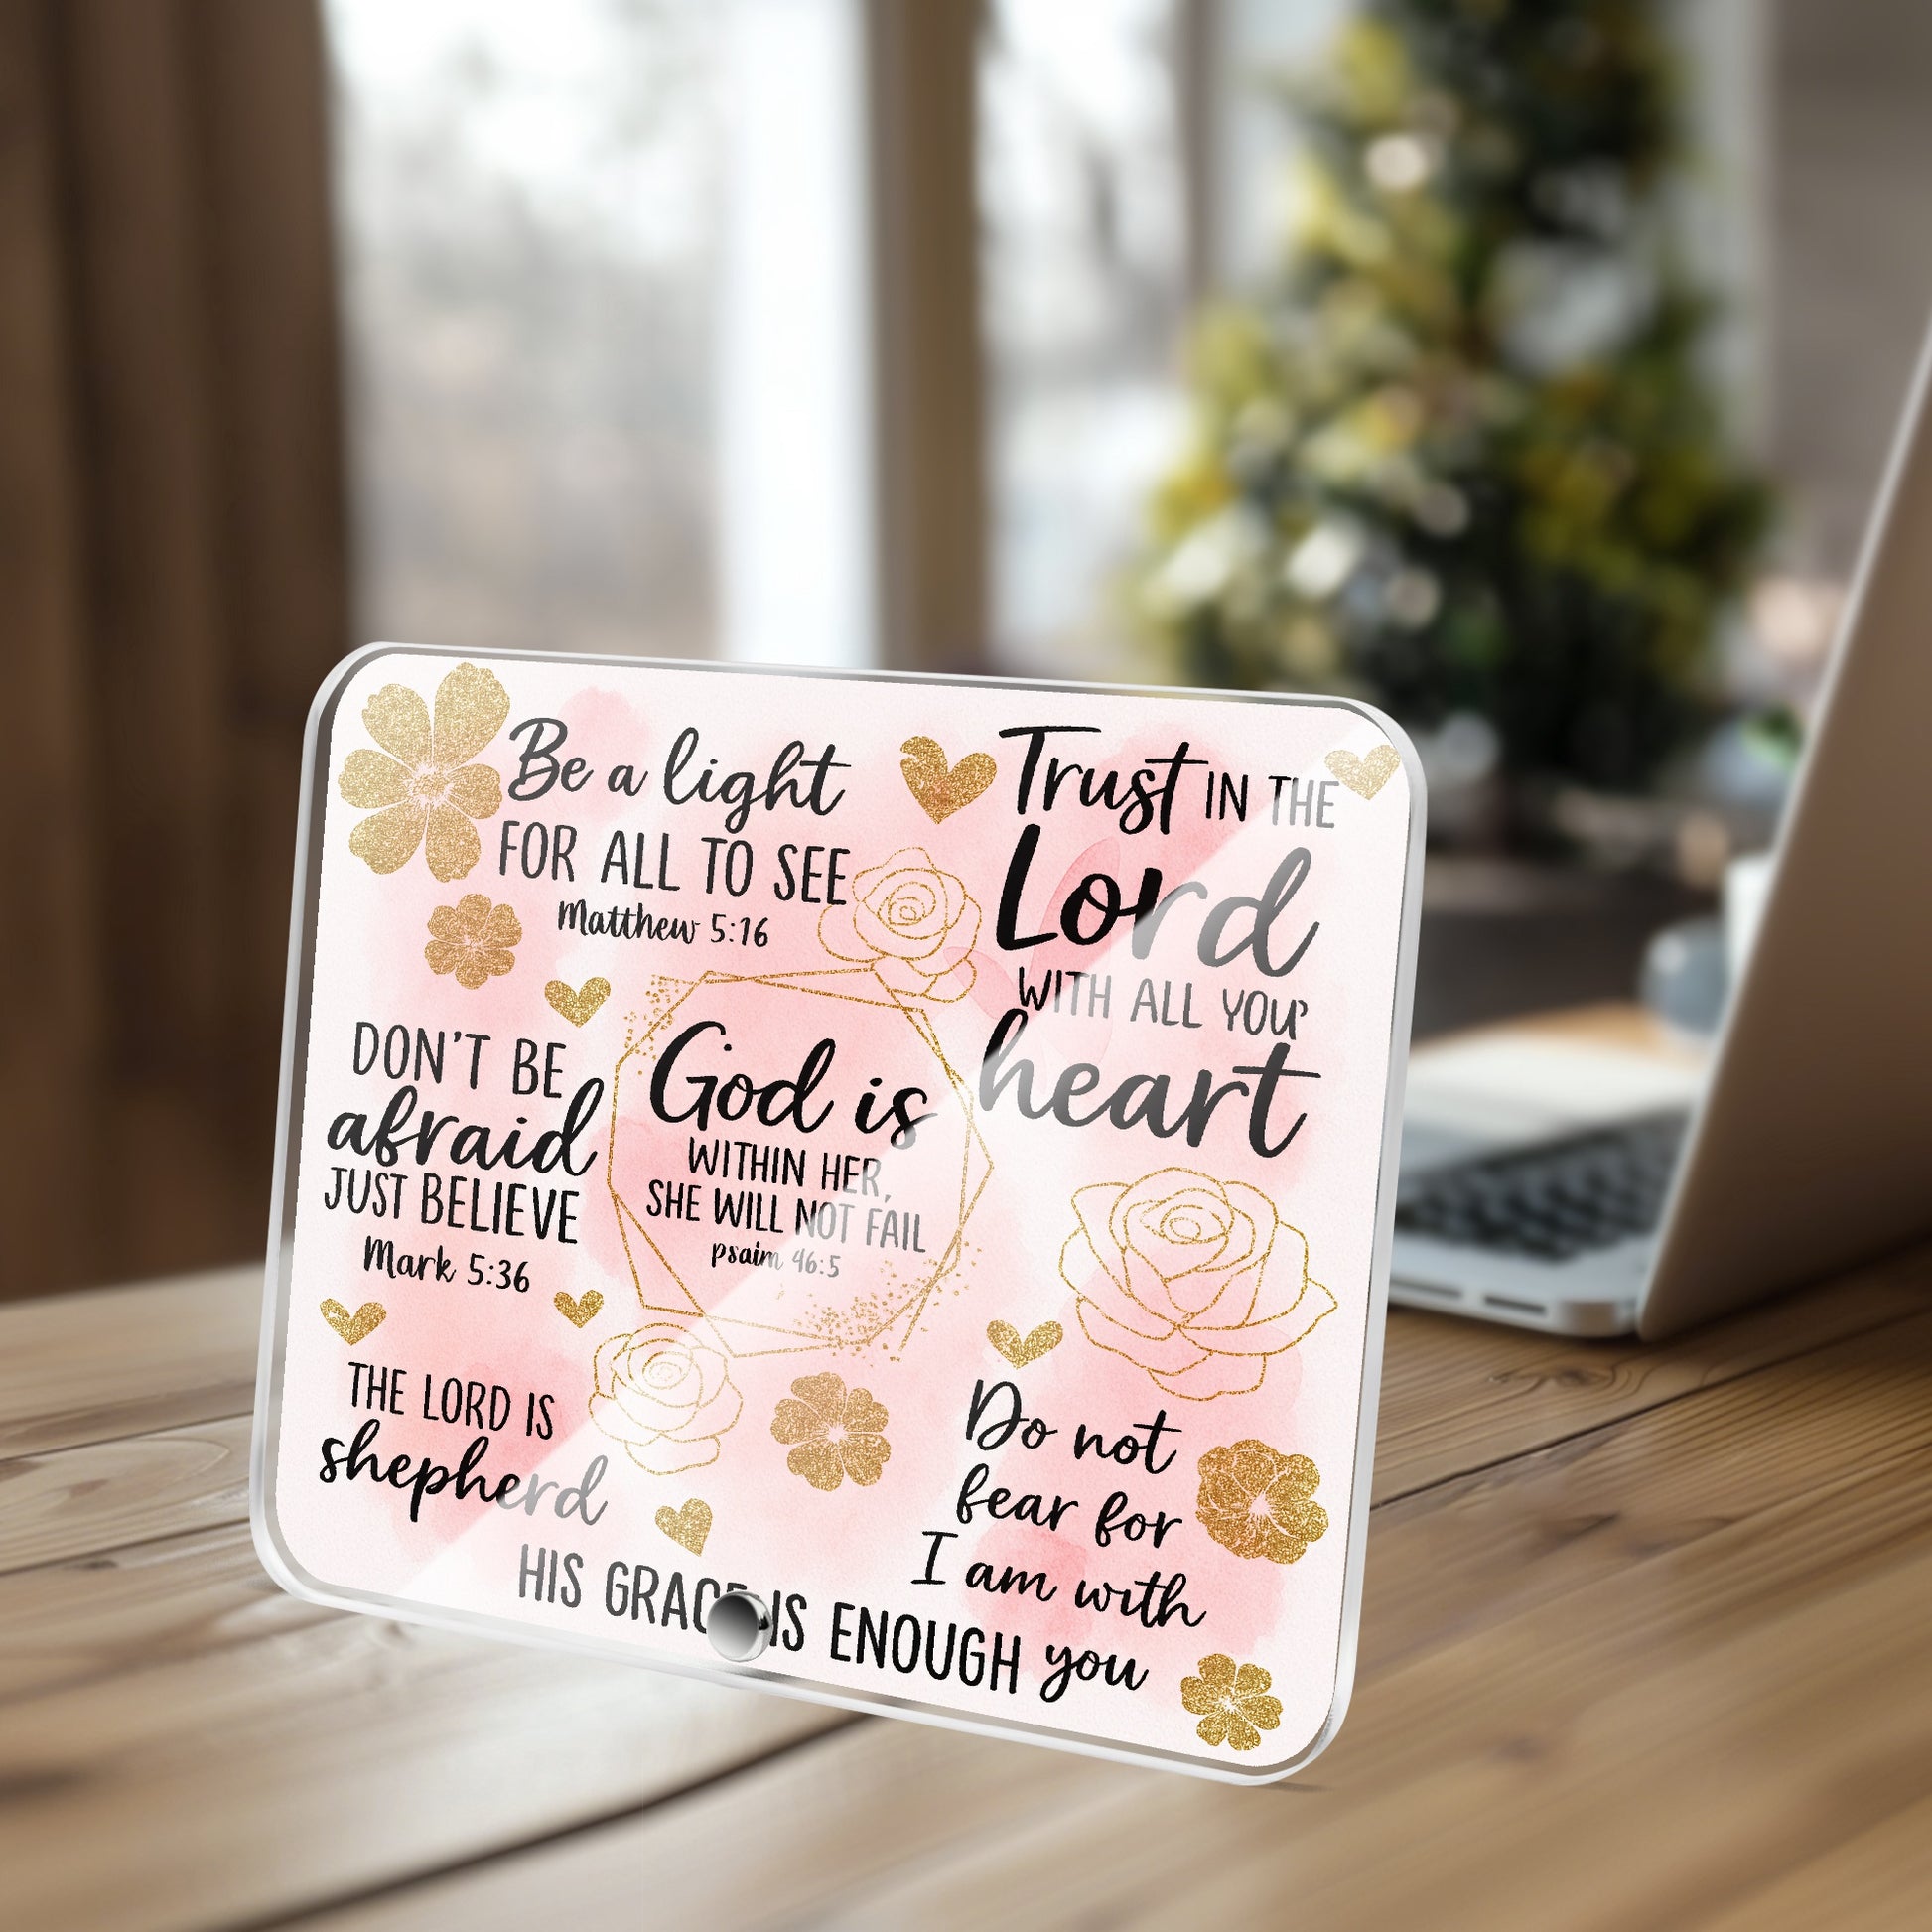 Be a light
FOR ALL TO SEE
Matthew 5:16
Trust IN THE
Lord
WITH ALL YOUR
heart
DON'T BE
afraid
JUST BELIEVE
Mark 5:36
God is
WITHIN HER,
SHE WILL NOT FAIL
psaim 46:5
THE LORD IS
shepherd
Do not
fear for
I am with
you
HIS GRACE IS ENOUGH